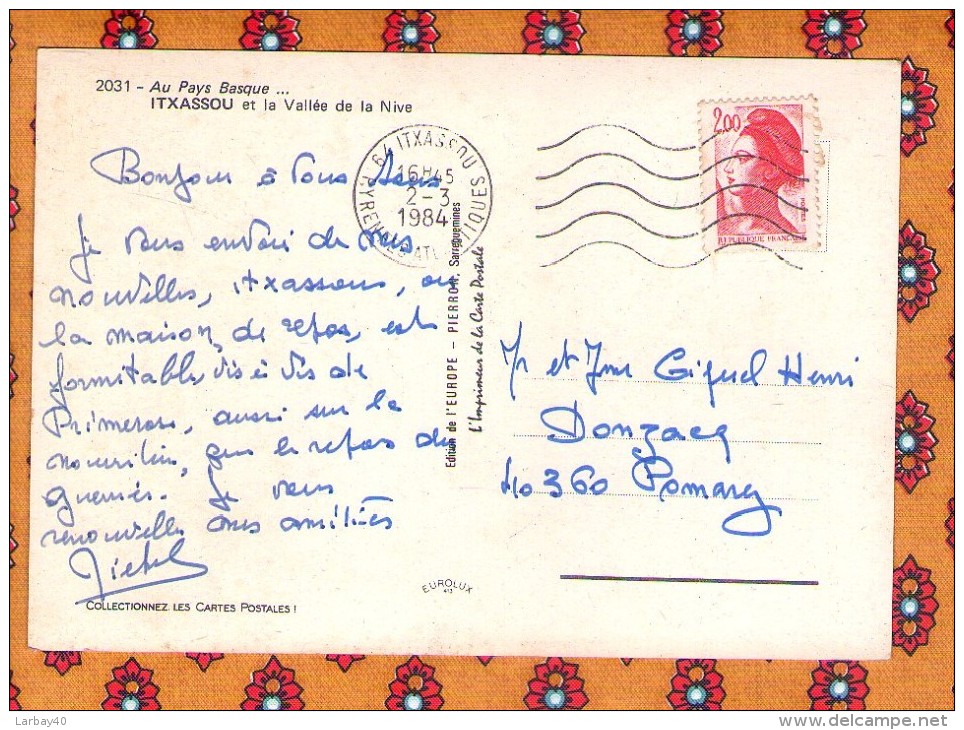 2031 - Au Pays Basque ...
ITXASSOU et la Vallée de la Nive
64 ITXASSOU
16H45
2-3
1984
2.00
POSTES
REPUBLIQUE FRANÇAISE
Bonjour à Vous
Je vous envoi de mes
nouvelles, itxassou, ou
la maison, de repos, est
formitable, vis à vis de
Primerose, aussi sur la
que le repos du
guerrier. Je vous
renouvelle mes amitiés
Edition de l'EUROPE - PIERRON, Sarreguemines
L'Imprimeur de la Carte Postale
Mr et Mme Giquel Henri
Donzacq
40360 Pomarez
EUROLUX
COLLECTIONNEZ LES CARTES POSTALES !
Larbay40
www.delcampe.net